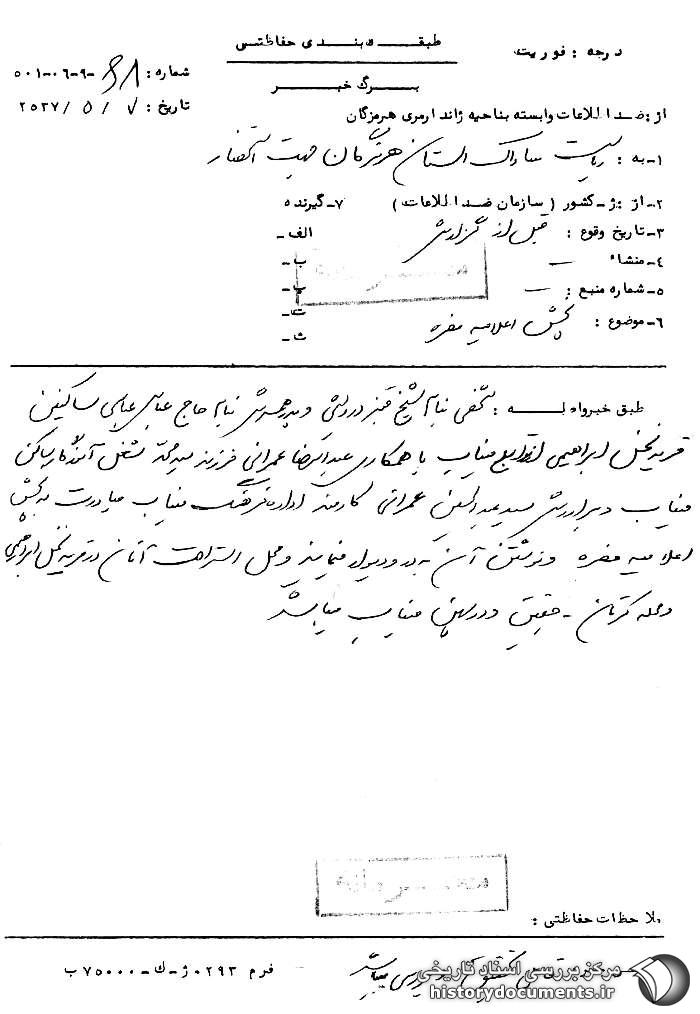 طبقه بندی حفاظتی
درجه : فوریت
برگ خبر
شماره : ۸۱ -۹-۰۶-۵۰۱
تاریخ : ۷ / ۵ /۲۵۳۷
از : ضد اطلاعات وابسته بناحیه ژاندارمری هرمزگان
۱-به : ریاست ساواک استان هرمزگان جهت استحضار
۲-از : ژ-کشور ( سازمان ضد اطلاعات )
۷-گیرنده
۳-تاریخ وقوع : قبل از گزارش
الف-
۴-منشاء —
ب-
۵-شماره منبع : —
پ-
محرمانه
ت-
۶-موضوع : پخش اعلامیه مضره
ث-
طبق خبر واصله : شخصی بنام شیخ قنبر درویشی و پدر همسرش بنام حاج عباس عباسی ساکنین
قریه نخل ابراهیمی از توابع میناب با همکاری عبدالرضا عمرانی فرزند سید محمد شغل آموزگار ساکن
میناب و برادرش سید عبدالحسین عمرانی کارمند اداره فرهنگ میناب مبادرت به پخش
اعلامیه مضره و نوشتن آن به در و دیوار مینمایند و محل استراحت آنان در قریه نخل ابراهیمی
و محله - حقیقی و در میناب میباشد
محرمانه
ملاحظات حفاظتی :
میباشد
فرم ۰۲۹۳ ژ-ک-۷۵۰۰۰ ب
مرکز بررسی اسناد تاریخی
historydocuments.ir